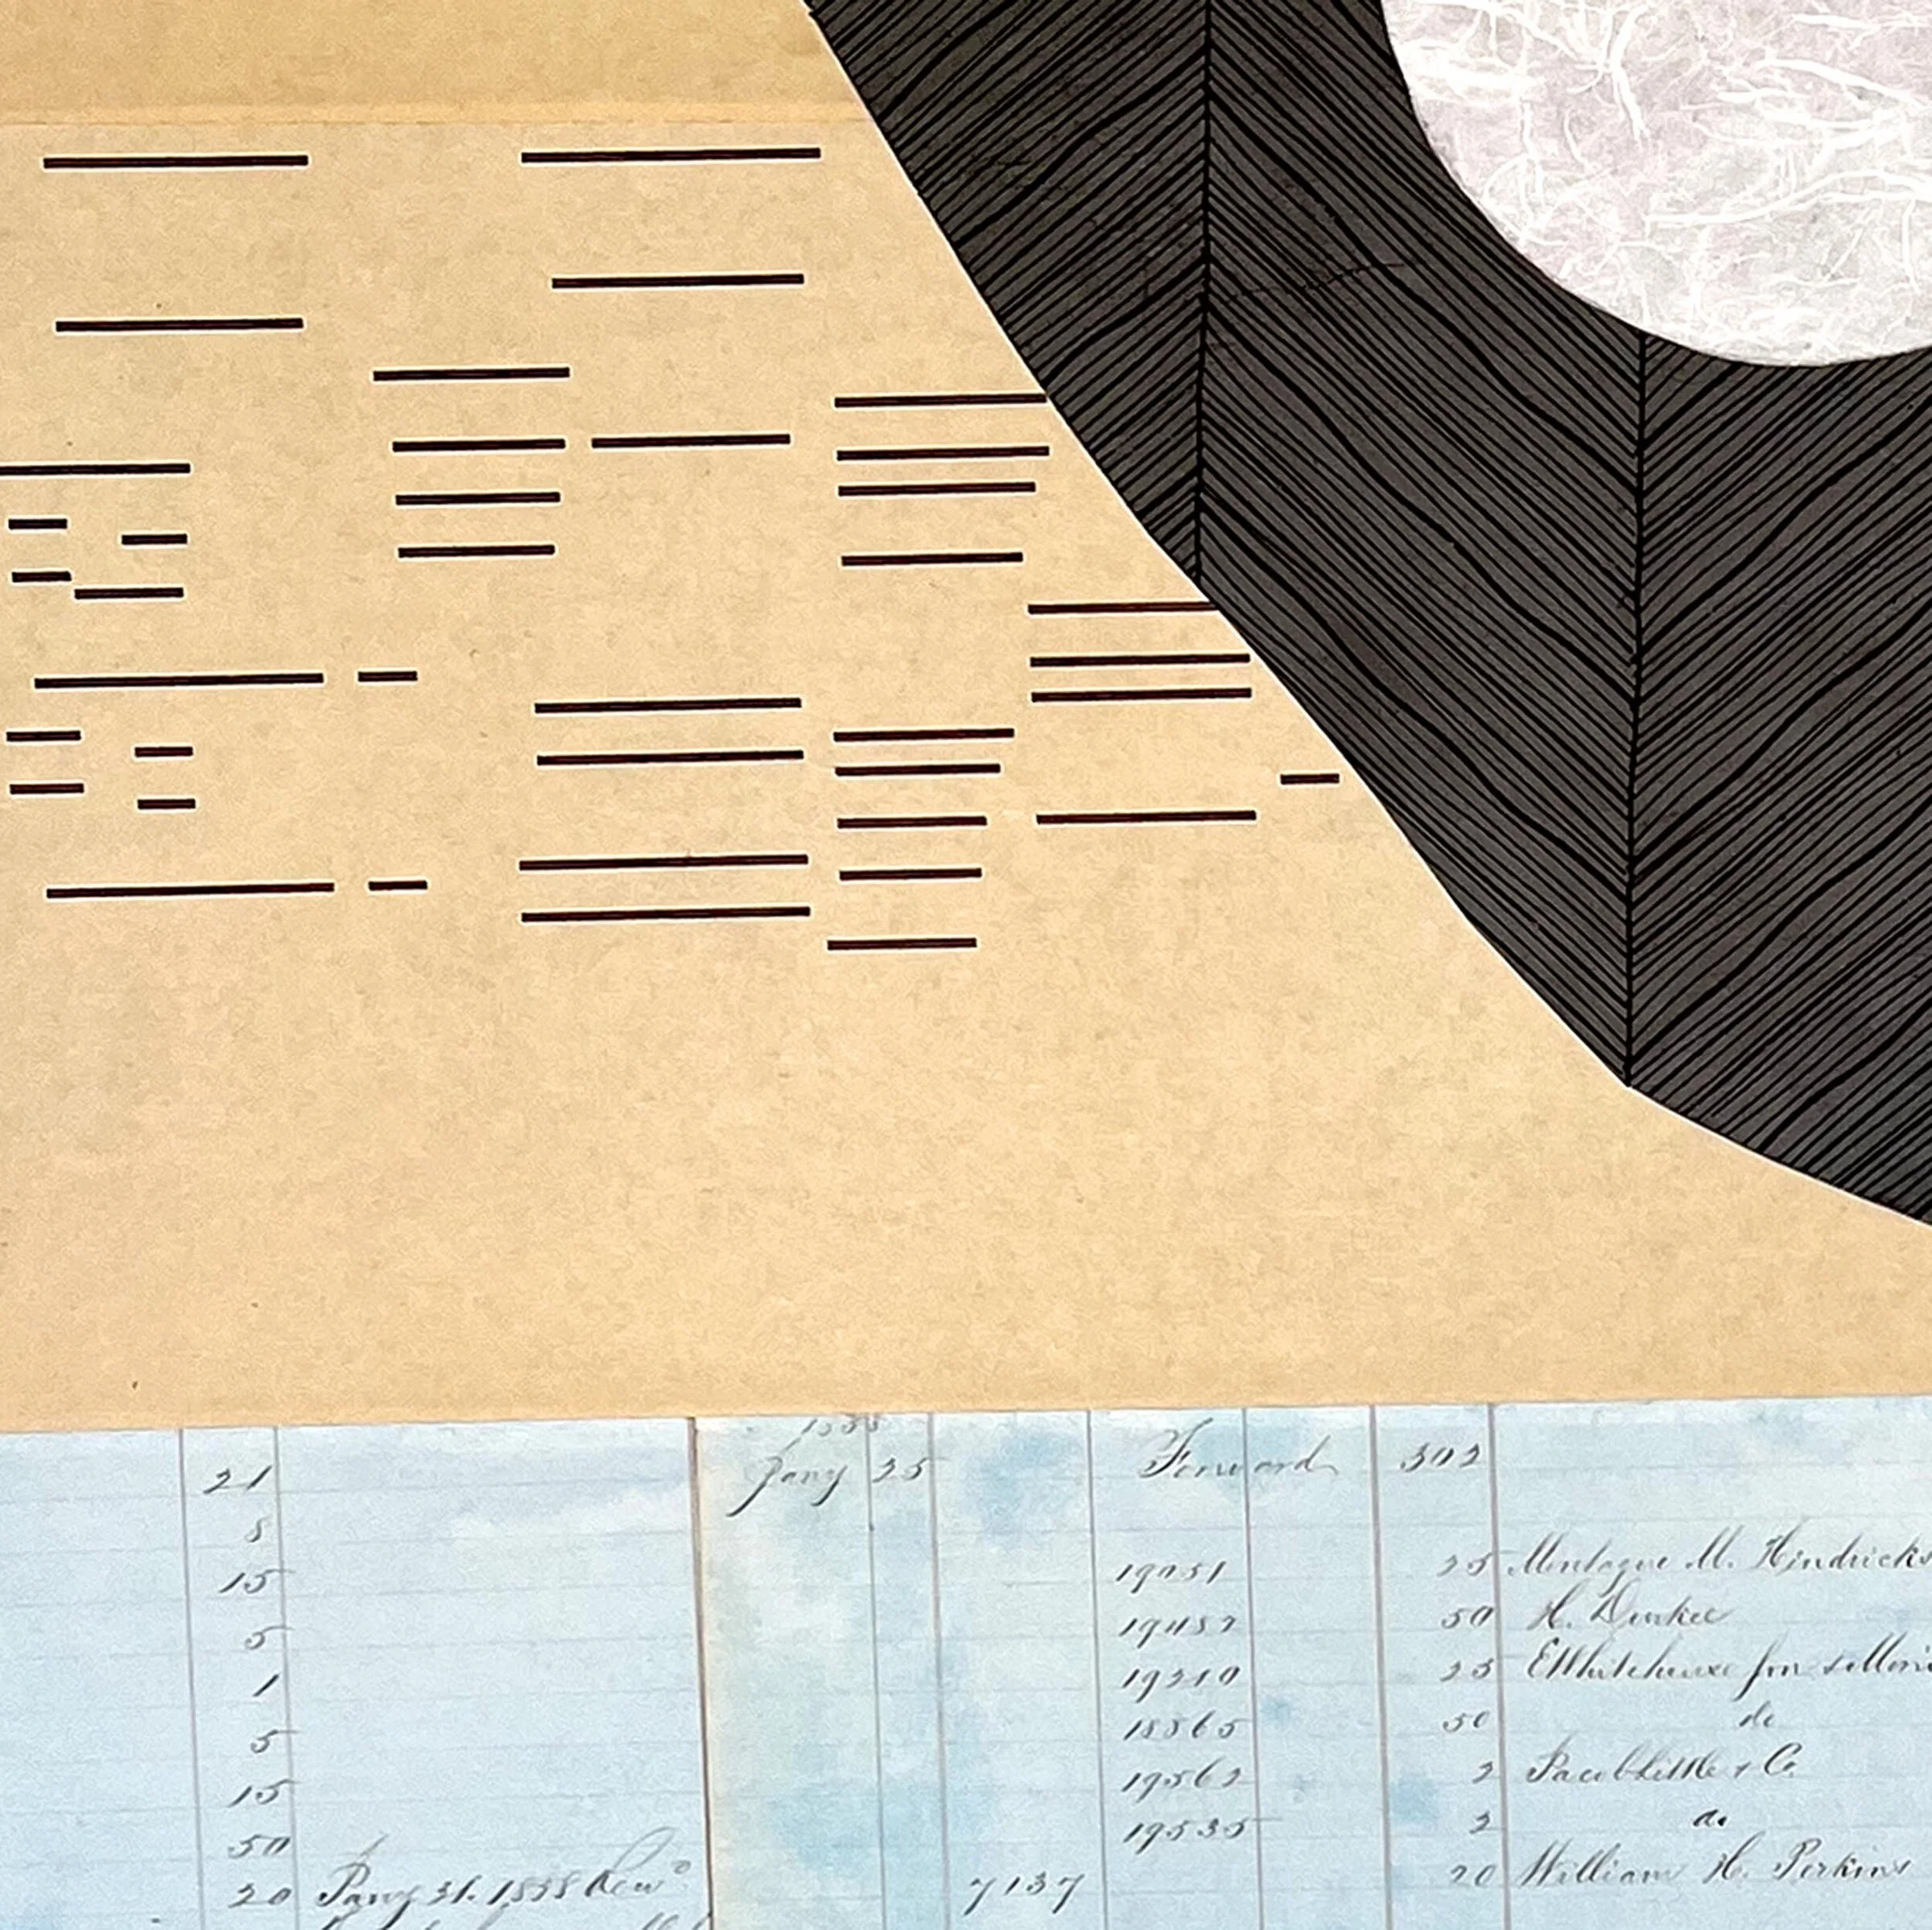 1838
21 Jany 25 Forward 302
8
15 19051 25 Montague M. Hendricks
5 19487 50 H. Durkee
1 19210 25 E Whitehouse for
5 18865 50 do
15 19562 2 Jacob Little & Co.
50 19535 2 do
20 Jany 31. 1838 7137 20 William H. Perkins